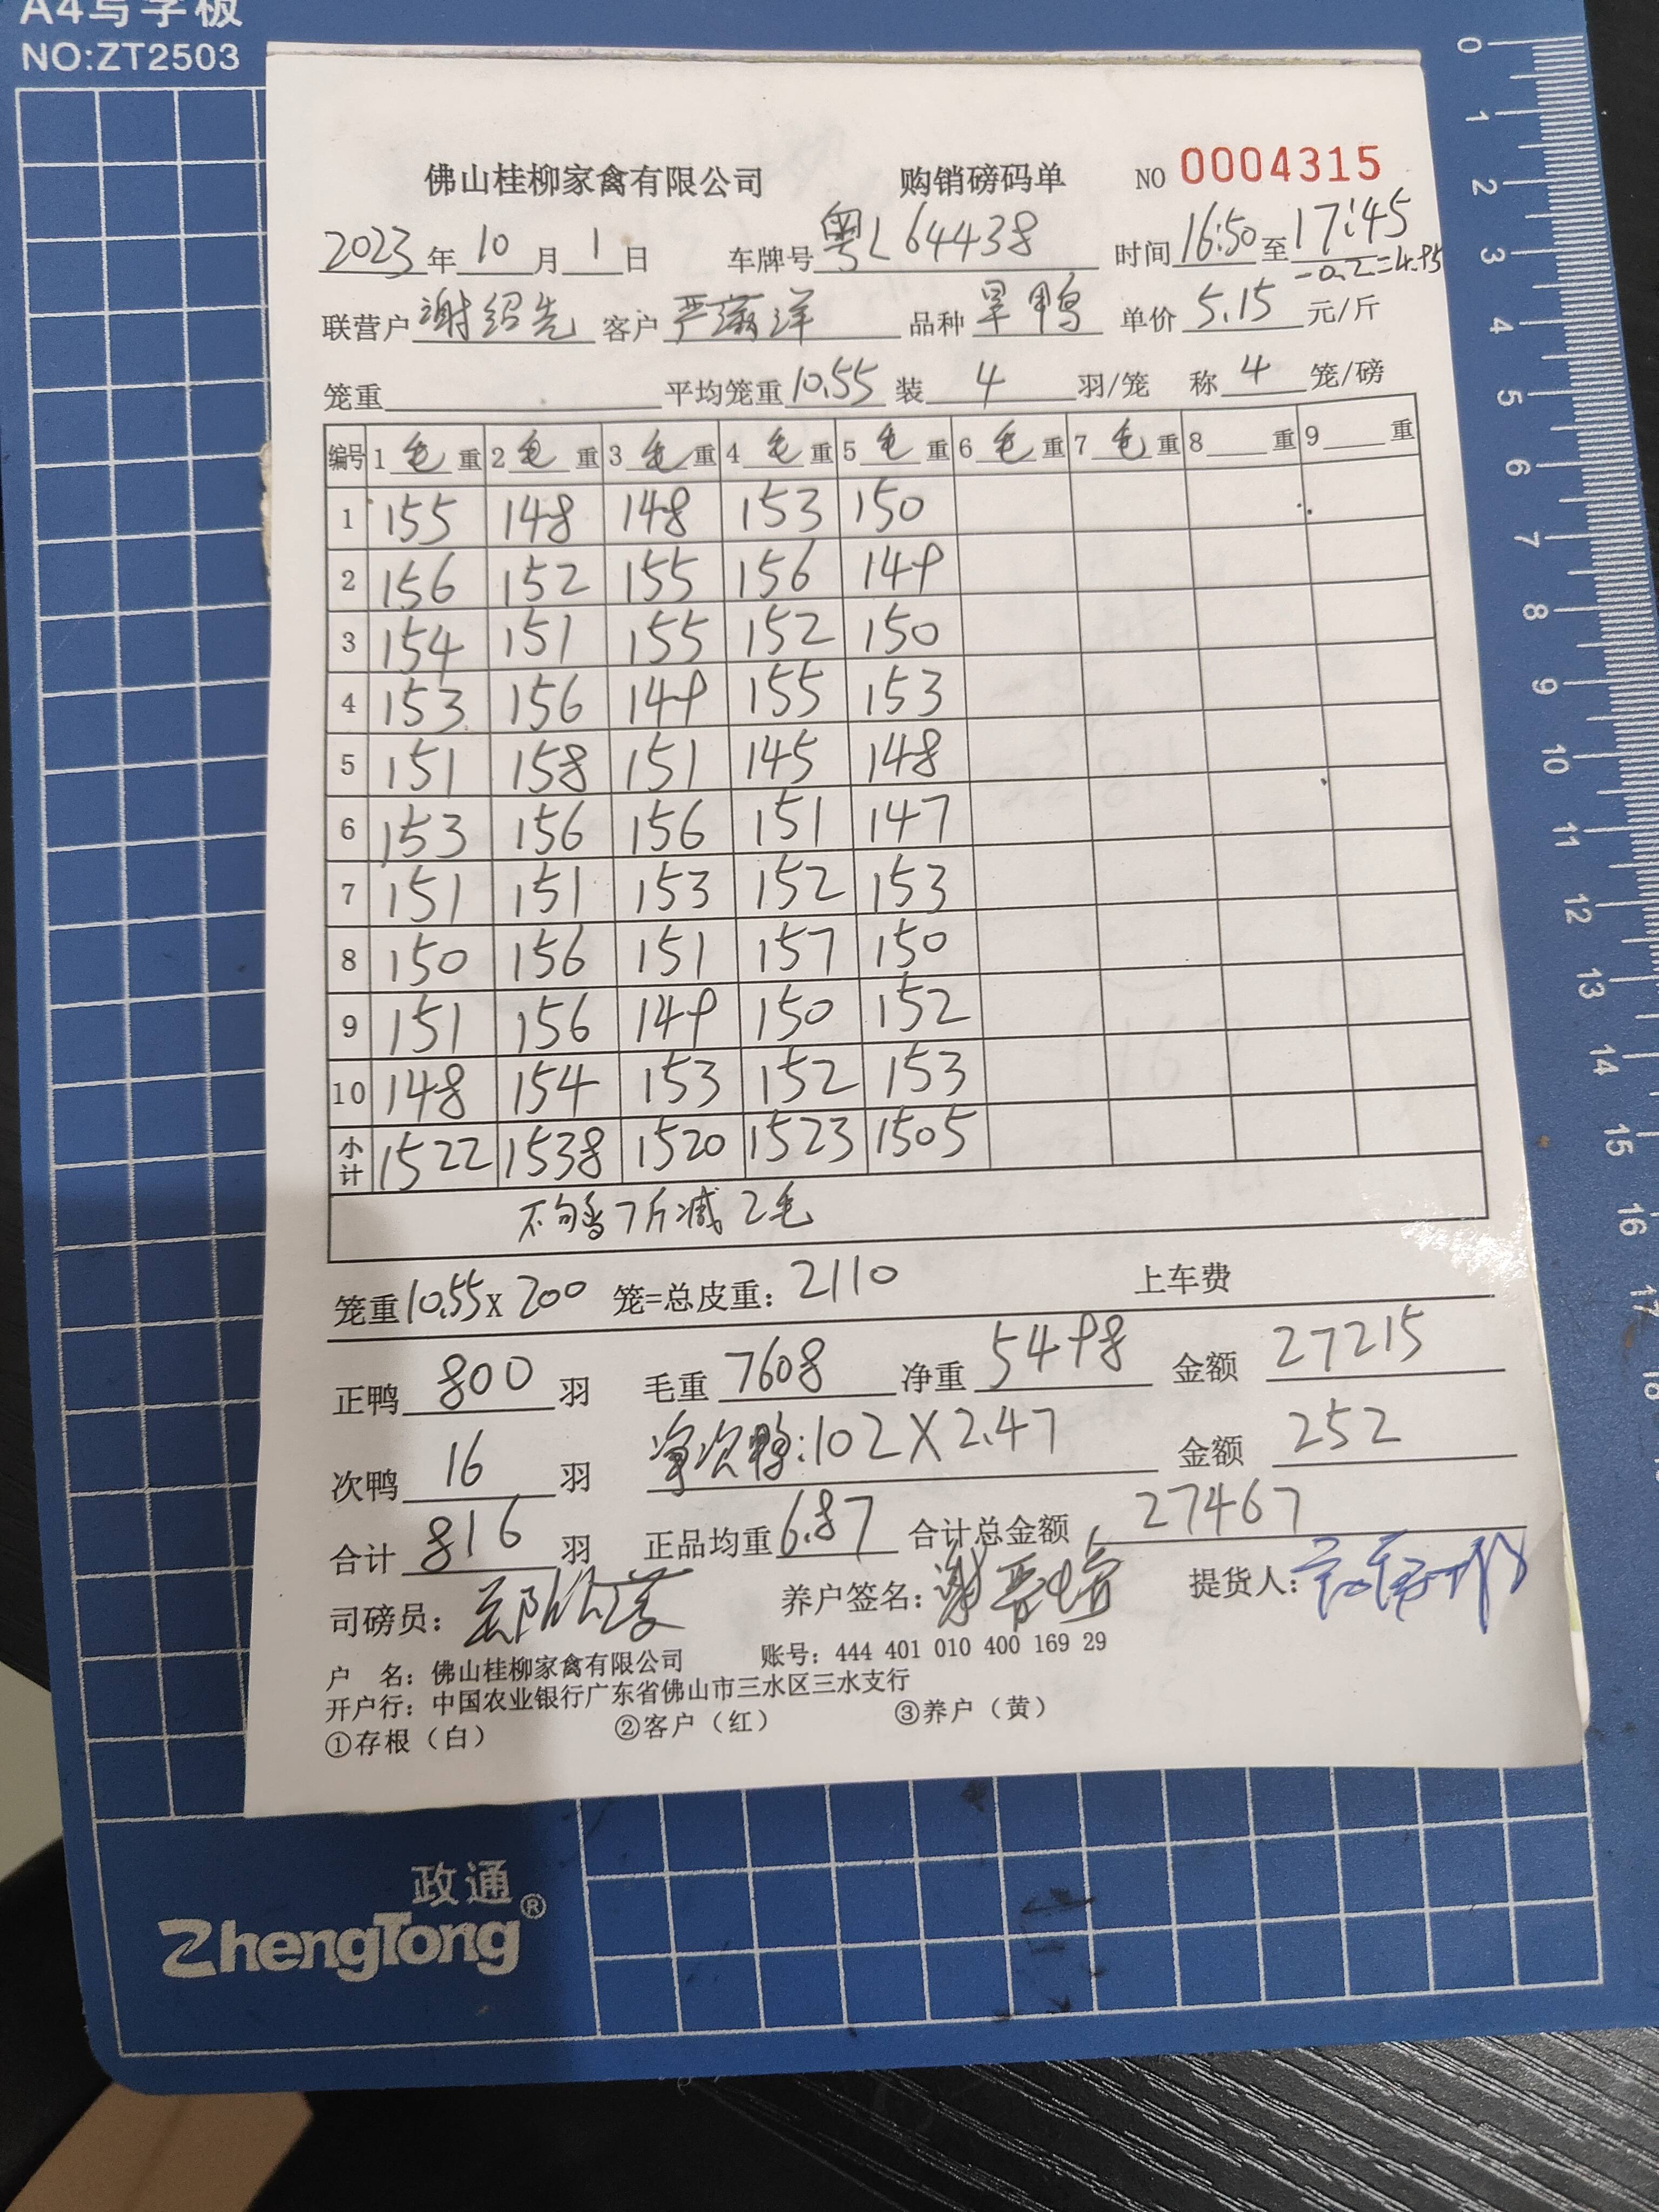 A4写字板
NO:ZT2503
佛山桂柳家禽有限公司 购销磅码单 NO 0004315
2023年10月1日 车牌号粤L64438 时间16:50至17:45
-0.2=4.95
联营户谢绍先 客户严 洋 品种旱鸭 单价5.15元/斤
笼重 平均笼重10.55 装4羽/笼 称4笼/磅
编号 1毛重 2毛重 3毛重 4毛重 5毛重 6毛重 7毛重 8重 9重
1 155 148 148 153 150
2 156 152 155 156 149
3 154 151 155 152 150
4 153 156 149 155 153
5 151 158 151 145 148
6 153 156 156 151 147
7 151 151 153 152 153
8 150 156 151 157 150
9 151 156 149 150 152
10 148 154 153 152 153
小计 1522 1538 1520 1523 1505
不够7斤减2毛
笼重10.55X200笼=总皮重:2110 上车费
正鸭800羽 毛重7608 净重5498 金额27215
次鸭16羽 净次鸭:102X2.47 金额252
合计816羽 正品均重6.87 合计总金额27467
司磅员: 养户签名: 提货人:
户 名:佛山桂柳家禽有限公司 账号:444 401 010 400 169 29
开户行:中国农业银行广东省佛山市三水区三水支行
①存根(白) ②客户(红) ③养户(黄)
政通
ZhengTong®
0
1
2
3
4
5
6
7
8
9
10
11
12
13
14
15
16
17
18